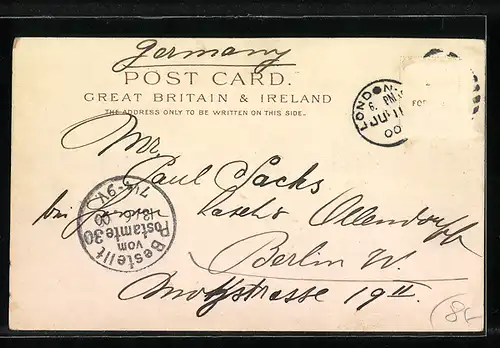 Germany
POST CARD.
GREAT BRITAIN & IRELAND
THE ADDRESS ONLY TO BE WRITTEN ON THIS SIDE.
FOR
LONDON
6. PM
JU 11
00
Mr.
Paul Sachs
bei Ollendorff
Berlin W.
19 II
Bestellt
vom
Postamte 30
7¼-9V
84